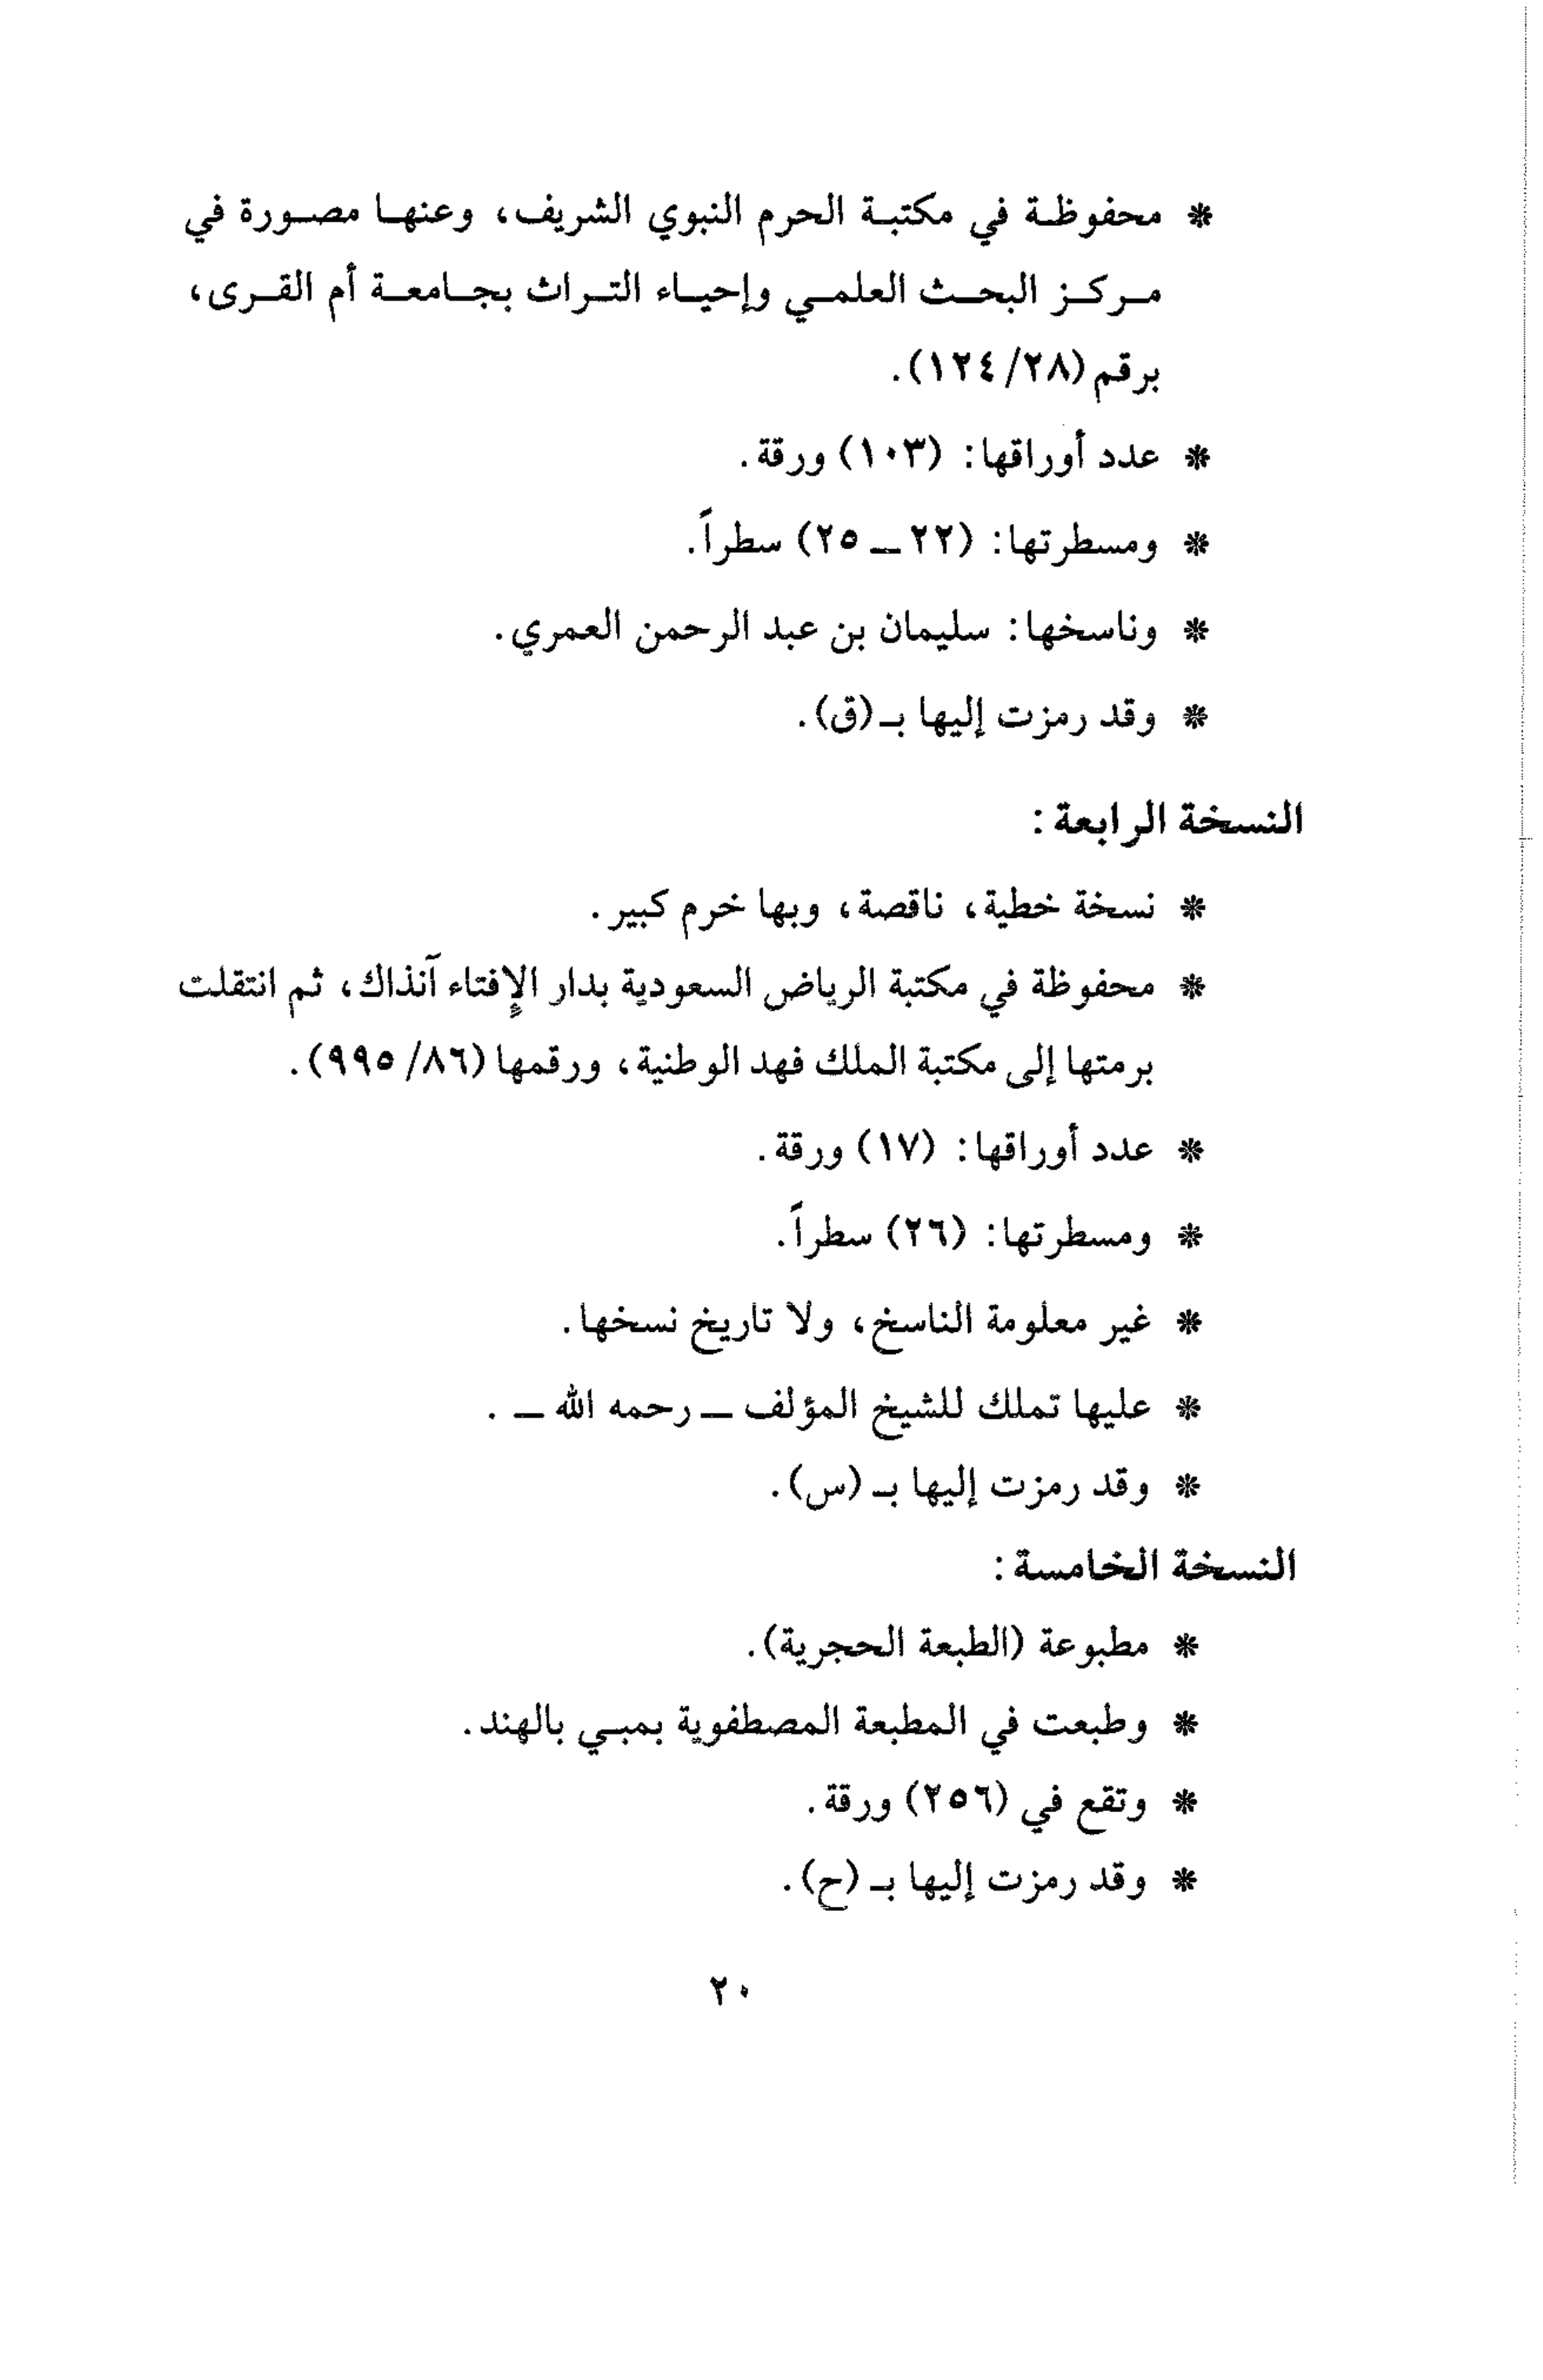 * محفوظة في مكتبة الحرم النبوي الشريف، وعنها مصورة في
مركز البحث العلمي وإحياء التراث بجامعة أم القرى،
برقم (٢٨/ ١٢٤).
* عدد أوراقها: (١٠٣) ورقة.
* ومسطرتها: (٢٢ ــ ٢٥) سطراً.
* وناسخها: سليمان بن عبد الرحمن العمري.
* وقد رمزت إليها بـ(ق).
النسخة الرابعة:
* نسخة خطية، ناقصة، وبها خرم كبير.
* محفوظة في مكتبة الرياض السعودية بدار الإفتاء آنذاك، ثم انتقلت
برمتها إلى مكتبة الملك فهد الوطنية، ورقمها (٨٦/ ٩٩٥).
* عدد أوراقها: (١٧) ورقة.
* ومسطرتها: (٢٦) سطراً.
* غير معلومة الناسخ، ولا تاريخ نسخها.
* عليها تملك للشيخ المؤلف ــ رحمه الله ــ .
* وقد رمزت إليها بـ (س).
النسخة الخامسة:
* مطبوعة (الطبعة الحجرية).
* وطبعت في المطبعة المصطفوية بمبي بالهند.
* وتقع في (٢٥٦) ورقة.
* وقد رمزت إليها بـ (ح).
٢٠